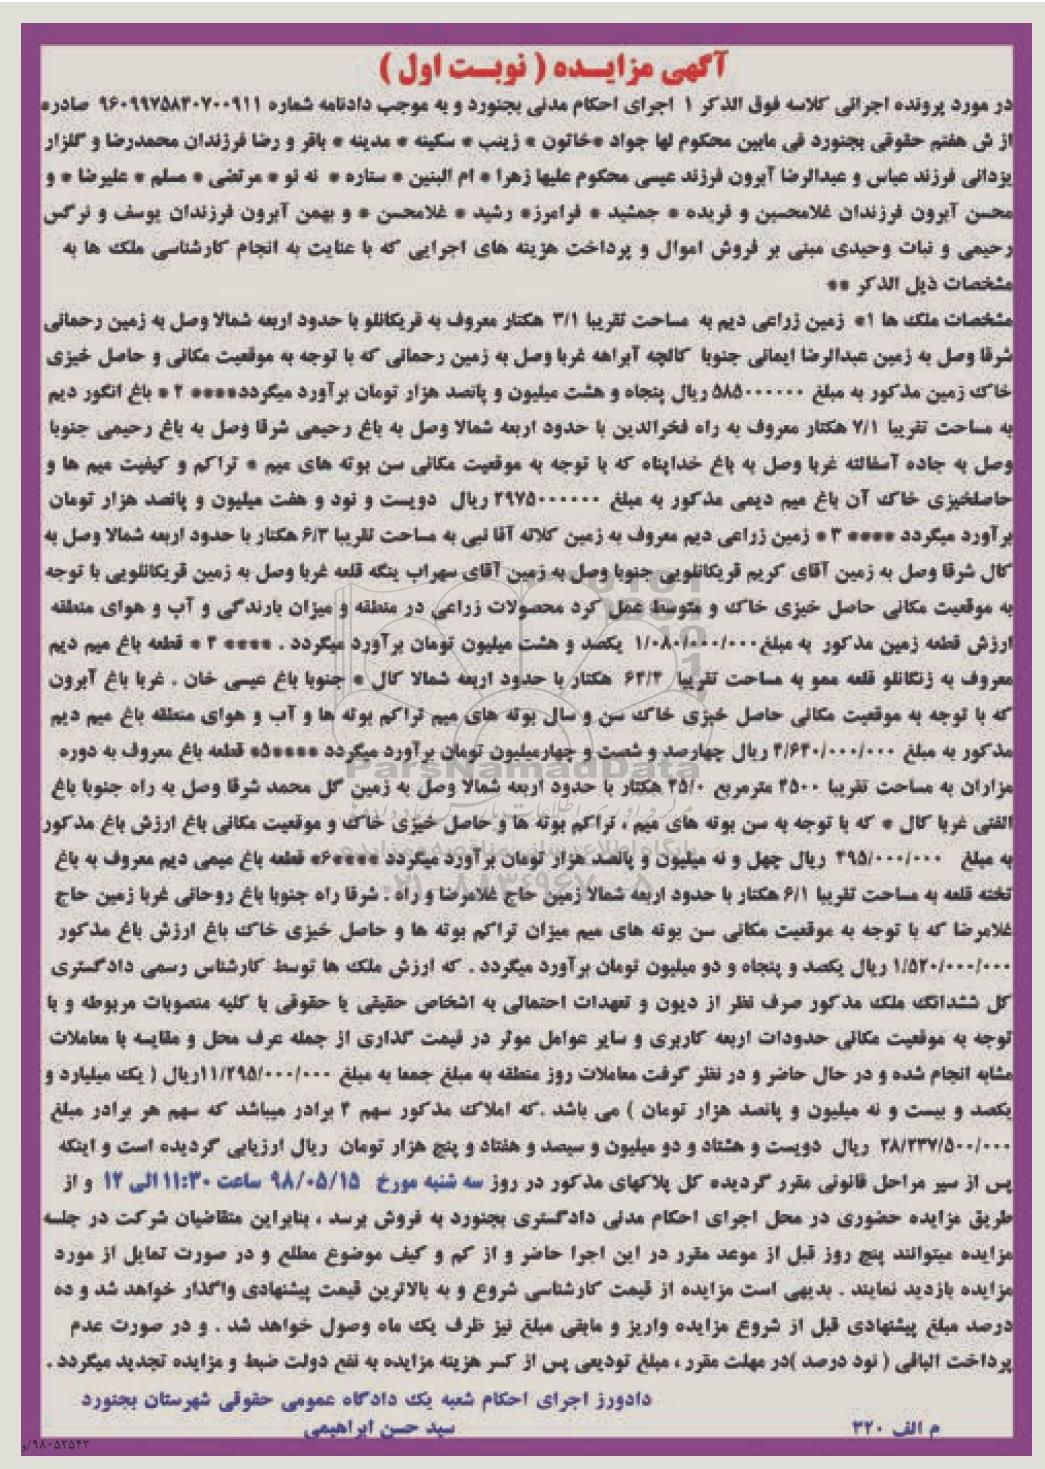 آگهی مزایـــده ( نوبــت اول )
در مورد پرونده اجرائی کلاسه فوق الذکر ۱ اجرای احکام مدنی بجنورد و به موجب دادنامه شماره ۹۶۰۹۹۷۵۸۳۰۷۰۰۹۱۱ صادره
از ش هفتم حقوقی بجنورد فی مابین محکوم لها جواد *خاتون * زینب * سکینه * مدینه * باقر و رضا فرزندان محمدرضا و گلزار
یزدانی فرزند عباس و عبدالرضا آبرون فرزند عیسی محکوم علیها زهرا * ام البنین * ستاره * نه نو * مرتضی * مسلم * علیرضا * و
محسن آبرون فرزندان غلامحسین و فریده * جمشید * فرامرز* رشید * غلامحسن * و بهمن آبرون فرزندان یوسف و نرگس
رحیمی و نبات وحیدی مبنی بر فروش اموال و پرداخت هزینه های اجرایی که با عنایت به انجام کارشناسی ملک ها به
مشخصات ذیل الذکر **
مشخصات ملک ها ۱* زمین زراعی دیم به مساحت تقریبا ۳/۱ هکتار معروف به قریکانلو با حدود اربعه شمالا وصل به زمین رحمانی
شرقا وصل به زمین عبدالرضا ایمانی جنوبا کالچه آبراهه غربا وصل به زمین رحمانی که با توجه به موقعیت مکانی و حاصل خیزی
خاک زمین مذکور به مبلغ ۵۸۵۰۰۰۰۰۰ ریال پنجاه و هشت میلیون و پانصد هزار تومان برآورد میگردد**** ۲ * باغ انگور دیم
به مساحت تقریبا ۷/۱ هکتار معروف به راه فخرالدین با حدود اربعه شمالا وصل به باغ رحیمی شرقا وصل به باغ رحیمی جنوبا
وصل به جاده آسفالته غربا وصل به باغ خداپناه که با توجه به موقعیت مکانی سن بوته های میم * تراکم و کیفیت میم ها و
حاصلخیزی خاک آن باغ میم دیمی مذکور به مبلغ ۲۹۷۵۰۰۰۰۰۰ ریال دویست و نود و هفت میلیون و پانصد هزار تومان
برآورد میگردد **** ۳ * زمین زراعی دیم معروف به زمین کلاته آقا نبی به مساحت تقریبا ۶/۳ هکتار با حدود اربعه شمالا وصل به
کال شرقا وصل به زمین آقای کریم قریکانلویی جنوبا وصل به زمین آقای سهراب ینگه قلعه غربا وصل به زمین قریکانلویی با توجه
به موقعیت مکانی حاصل خیزی خاک و متوسط عمل کرد محصولات زراعی در منطقه و میزان بارندگی و آب و هوای منطقه
ارزش قطعه زمین مذکور به مبلغ۱/۰۸۰/۰۰۰/۰۰۰ یکصد و هشت میلیون تومان برآورد میگردد . **** ۴ * قطعه باغ میم دیم
معروف به زنگانلو قلعه ممو به مساحت تقریبا هکتار با حدود اربعه شمالا کال * جنوبا باغ عیسی خان . غربا باغ آبرون
که با توجه به موقعیت مکانی حاصل خیزی خاک سن و سال بوته های میم تراکم بوته ها و آب و هوای منطقه باغ میم دیم
مذکور به مبلغ ۴/۶۴۰/۰۰۰/۰۰۰ ریال چهارصد و شصت و چهارمیلیون تومان برآورد میگردد ****۵* قطعه باغ معروف به دوره
مزاران به مساحت تقریبا ۴۵۰۰ مترمربع ۴۵/۰ هکتار با حدود اربعه شمالا وصل به زمین گل محمد شرقا وصل به راه جنوبا باغ
الفتی غربا کال * که با توجه به سن بوته های میم ، تراکم بوته ها و حاصل خیزی خاک و موقعیت مکانی باغ ارزش باغ مذکور
به مبلغ ۴۹۵/۰۰۰/۰۰۰ ریال چهل و نه میلیون و پانصد هزار تومان برآورد میگردد ****۶* قطعه باغ میمی دیم معروف به باغ
تخته قلعه به مساحت تقریبا ۶/۱ هکتار با حدود اربعه شمالا زمین حاج غلامرضا و راه . شرقا راه جنوبا باغ روحانی غربا زمین حاج
غلامرضا که با توجه به موقعیت مکانی سن بوته های میم میزان تراکم بوته ها و حاصل خیزی خاک باغ ارزش باغ مذکور
۱/۵۲۰/۰۰۰/۰۰۰ ریال یکصد و پنجاه و دو میلیون تومان برآورد میگردد . که ارزش ملک ها توسط کارشناس رسمی دادگستری
کل ششدانگ ملک مذکور صرف نظر از دیون و تعهدات احتمالی به اشخاص حقیقی یا حقوقی با کلیه منصوبات مربوطه و با
توجه به موقعیت مکانی حدودات اربعه کاربری و سایر عوامل موثر در قیمت گذاری از جمله عرف محل و مقایسه با معاملات
مشابه انجام شده و در حال حاضر و در نظر گرفت معاملات روز منطقه به مبلغ جمعا به مبلغ ۱۱/۲۹۵/۰۰۰/۰۰۰ریال ( یک میلیارد و
یکصد و بیست و نه میلیون و پانصد هزار تومان ) می باشد .که املاک مذکور سهم ۴ برادر میباشد که سهم هر برادر مبلغ
۲۸/۲۳۷/۵۰۰/۰۰۰ ریال دویست و هشتاد و دو میلیون و سیصد و هفتاد و پنج هزار تومان ریال ارزیابی گردیده است و اینکه
پس از سیر مراحل قانونی مقرر گردیده کل پلاکهای مذکور در روز سه شنبه مورخ ۹۸/۰۵/۱۵ ساعت ۱۱:۳۰ الی ۱۲ و از
طریق مزایده حضوری در محل اجرای احکام مدنی دادگستری بجنورد به فروش برسد ، بنابراین متقاضیان شرکت در جلسه
مزایده میتوانند پنج روز قبل از موعد مقرر در این اجرا حاضر و از کم و کیف موضوع مطلع و در صورت تمایل از مورد
مزایده بازدید نمایند . بدیهی است مزایده از قیمت کارشناسی شروع و به بالاترین قیمت پیشنهادی واگذار خواهد شد و ده
درصد مبلغ پیشنهادی قبل از شروع مزایده واریز و مابقی مبلغ نیز ظرف یک ماه وصول خواهد شد . و در صورت عدم
پرداخت الباقی ( نود درصد )در مهلت مقرر ، مبلغ تودیعی پس از کسر هزینه مزایده به نفع دولت ضبط و مزایده تجدید میگردد .
دادورز اجرای احکام شعبه یک دادگاه عمومی حقوقی شهرستان بجنورد
م الف ۳۲۰ سید حسن ابراهیمی
۹۸۰۵۲۵۴۲/و
ParsNamadData